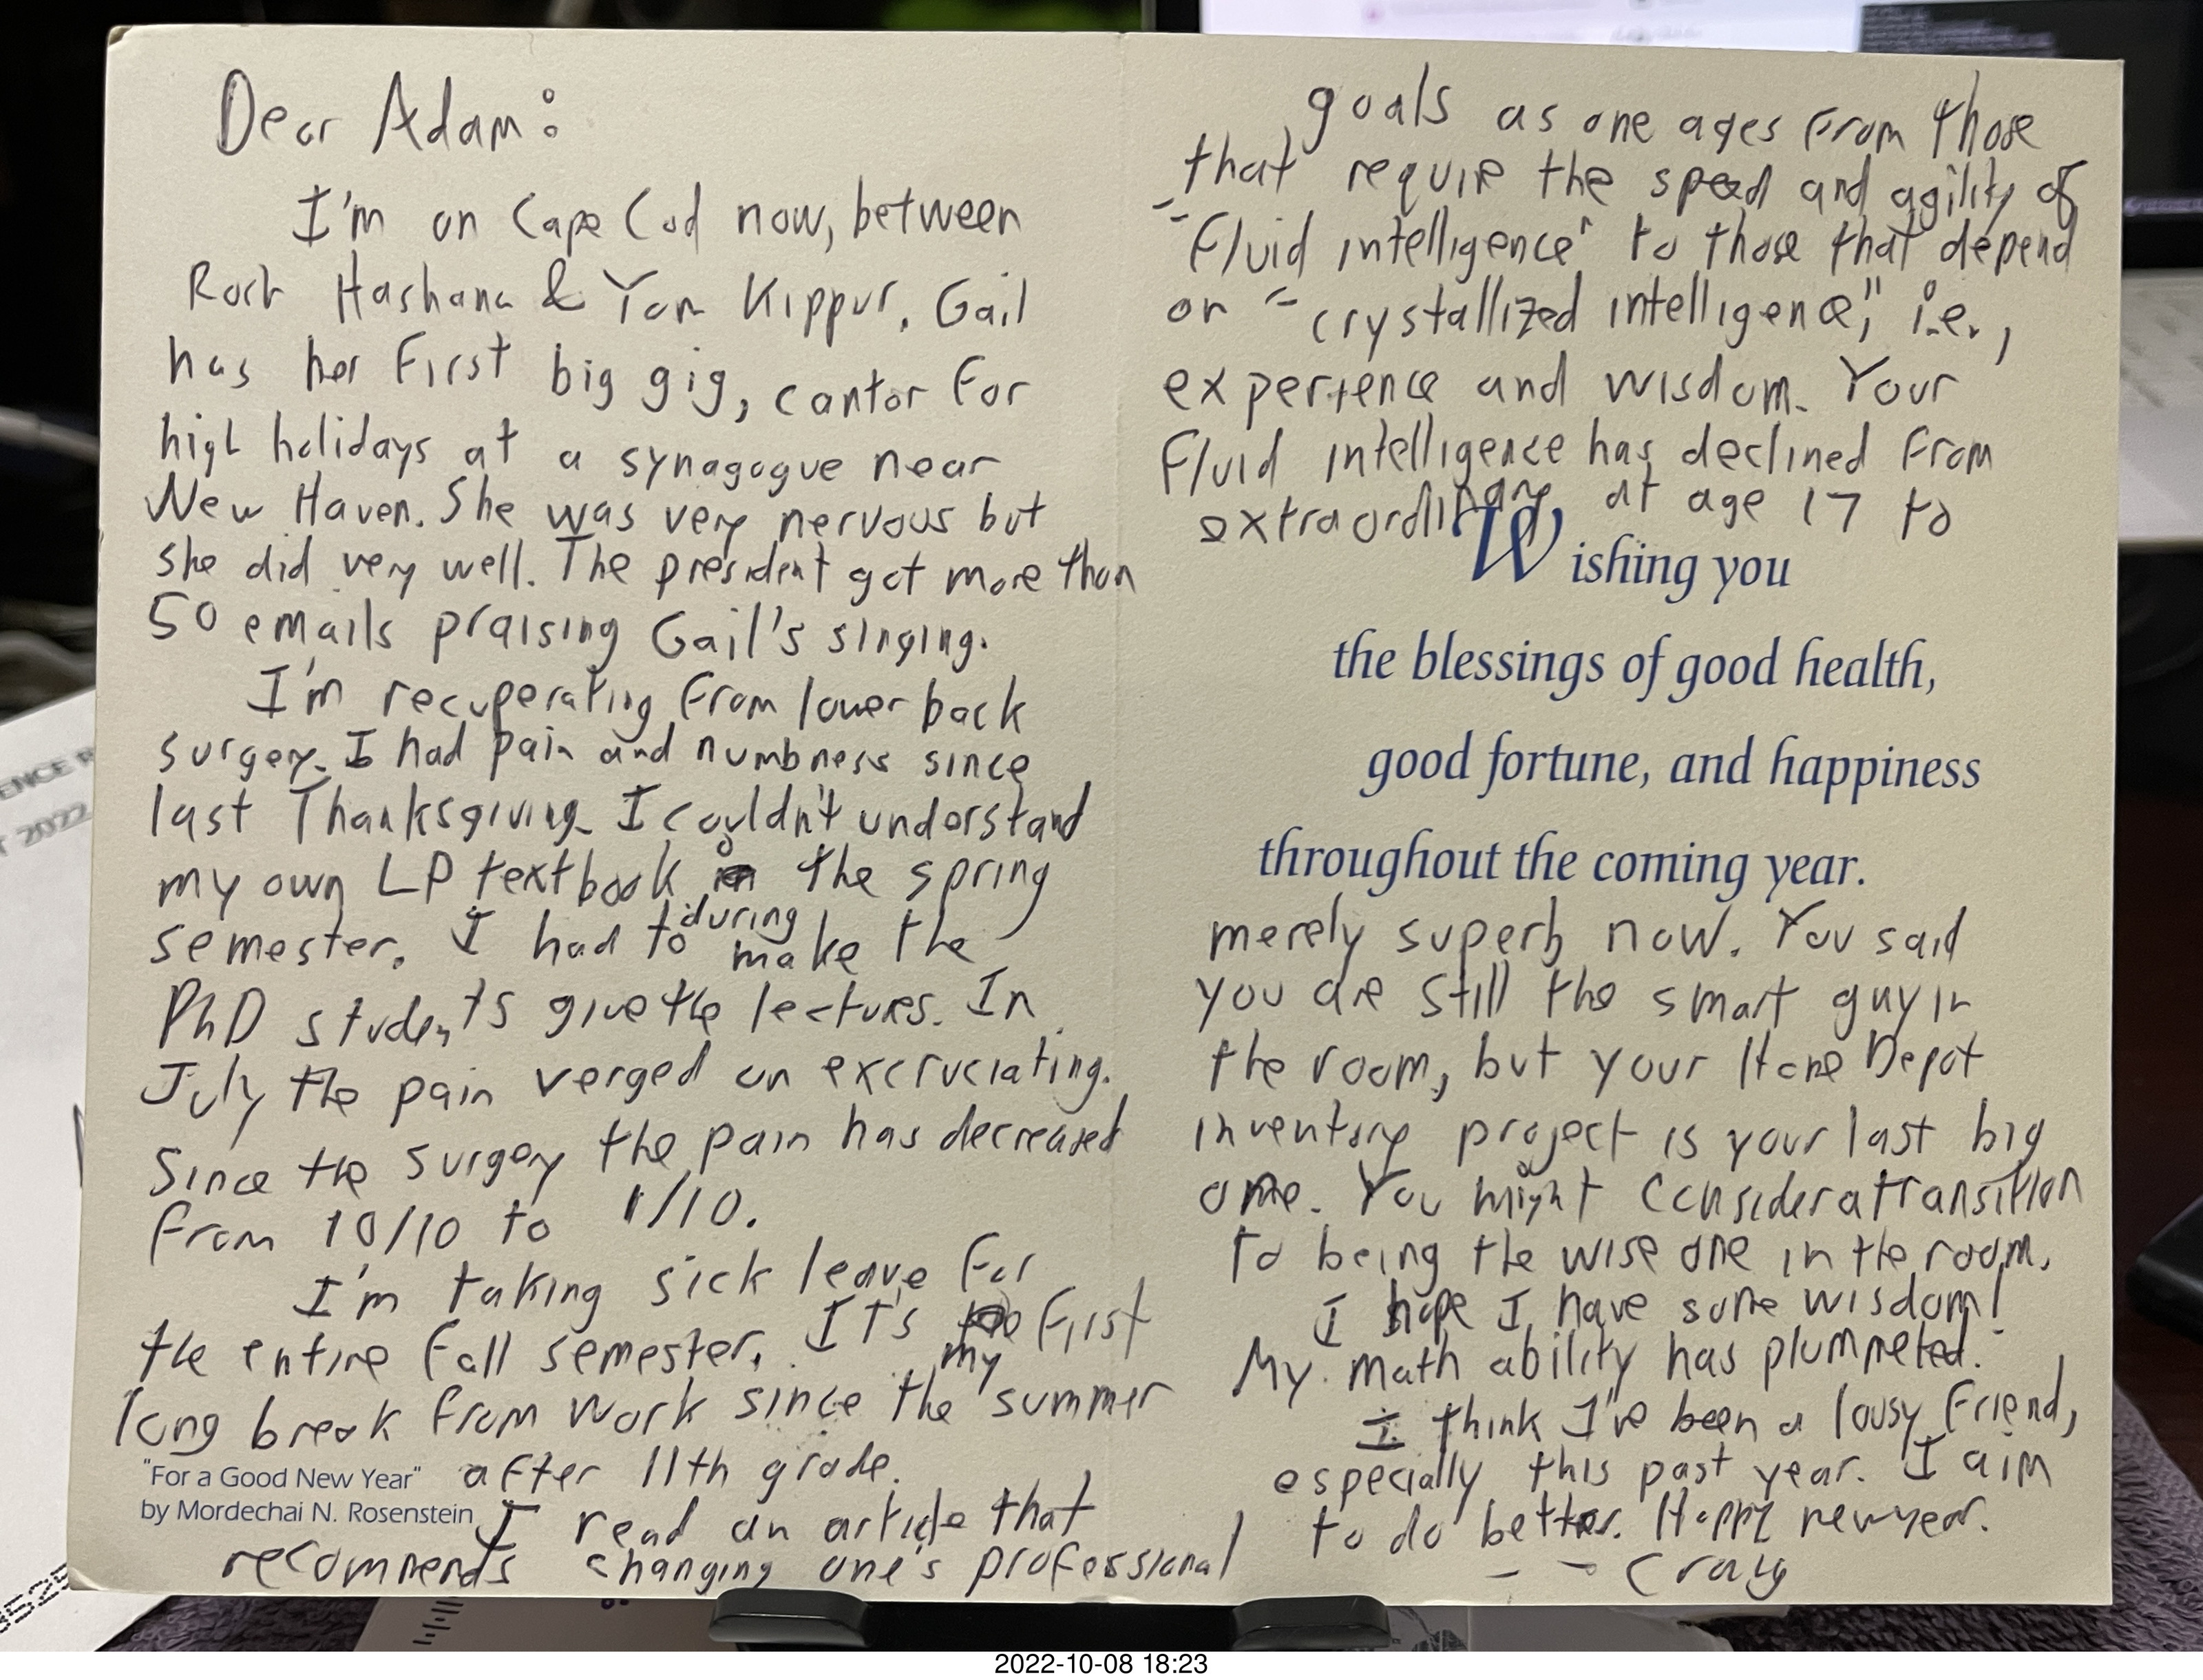 Dear Adam:
I'm on Cape Cod now, between
Rosh Hashana & Yom Kippur. Gail
has her first big gig, cantor for
high holidays at a synagogue near
New Haven. She was very nervous but
she did very well. The president got more than
50 emails praising Gail's singing.
I'm recuperating from lower back
surgery. I had pain and numbness since
last Thanksgiving. I couldn't understand
my own LP textbook the spring
during
semester. I had to make the
PhD students give the lectures. In
July the pain verged on excruciating.
Since the surgery the pain has decreased
from 10/10 to 1/10.
I'm taking sick leave for
the entire fall semester. It's my first
long break from work since the summer
after 11th grade.
"For a Good New Year"
by Mordechai N. Rosenstein
I read an article that
recommends changing one's professional
goals as one ages from those
that require the speed and agility of
"fluid intelligence" to those that depend
on "crystallized intelligence," i.e.,
experience and wisdom. Your
fluid intelligence has declined from
extraordinary at age 17 to
Wishing you
the blessings of good health,
good fortune, and happiness
throughout the coming year.
merely superb now. You said
you are still the smart guy in
the room, but your Home Depot
inventory project is your last big
one. You might consider a transition
to being the wise one in the room.
I hope I have some wisdom!
My math ability has plummeted.
I think I've been a lousy friend,
especially this past year. I aim
to do better. Happy new year.
-- Craig
2022
2022-10-08 18:23